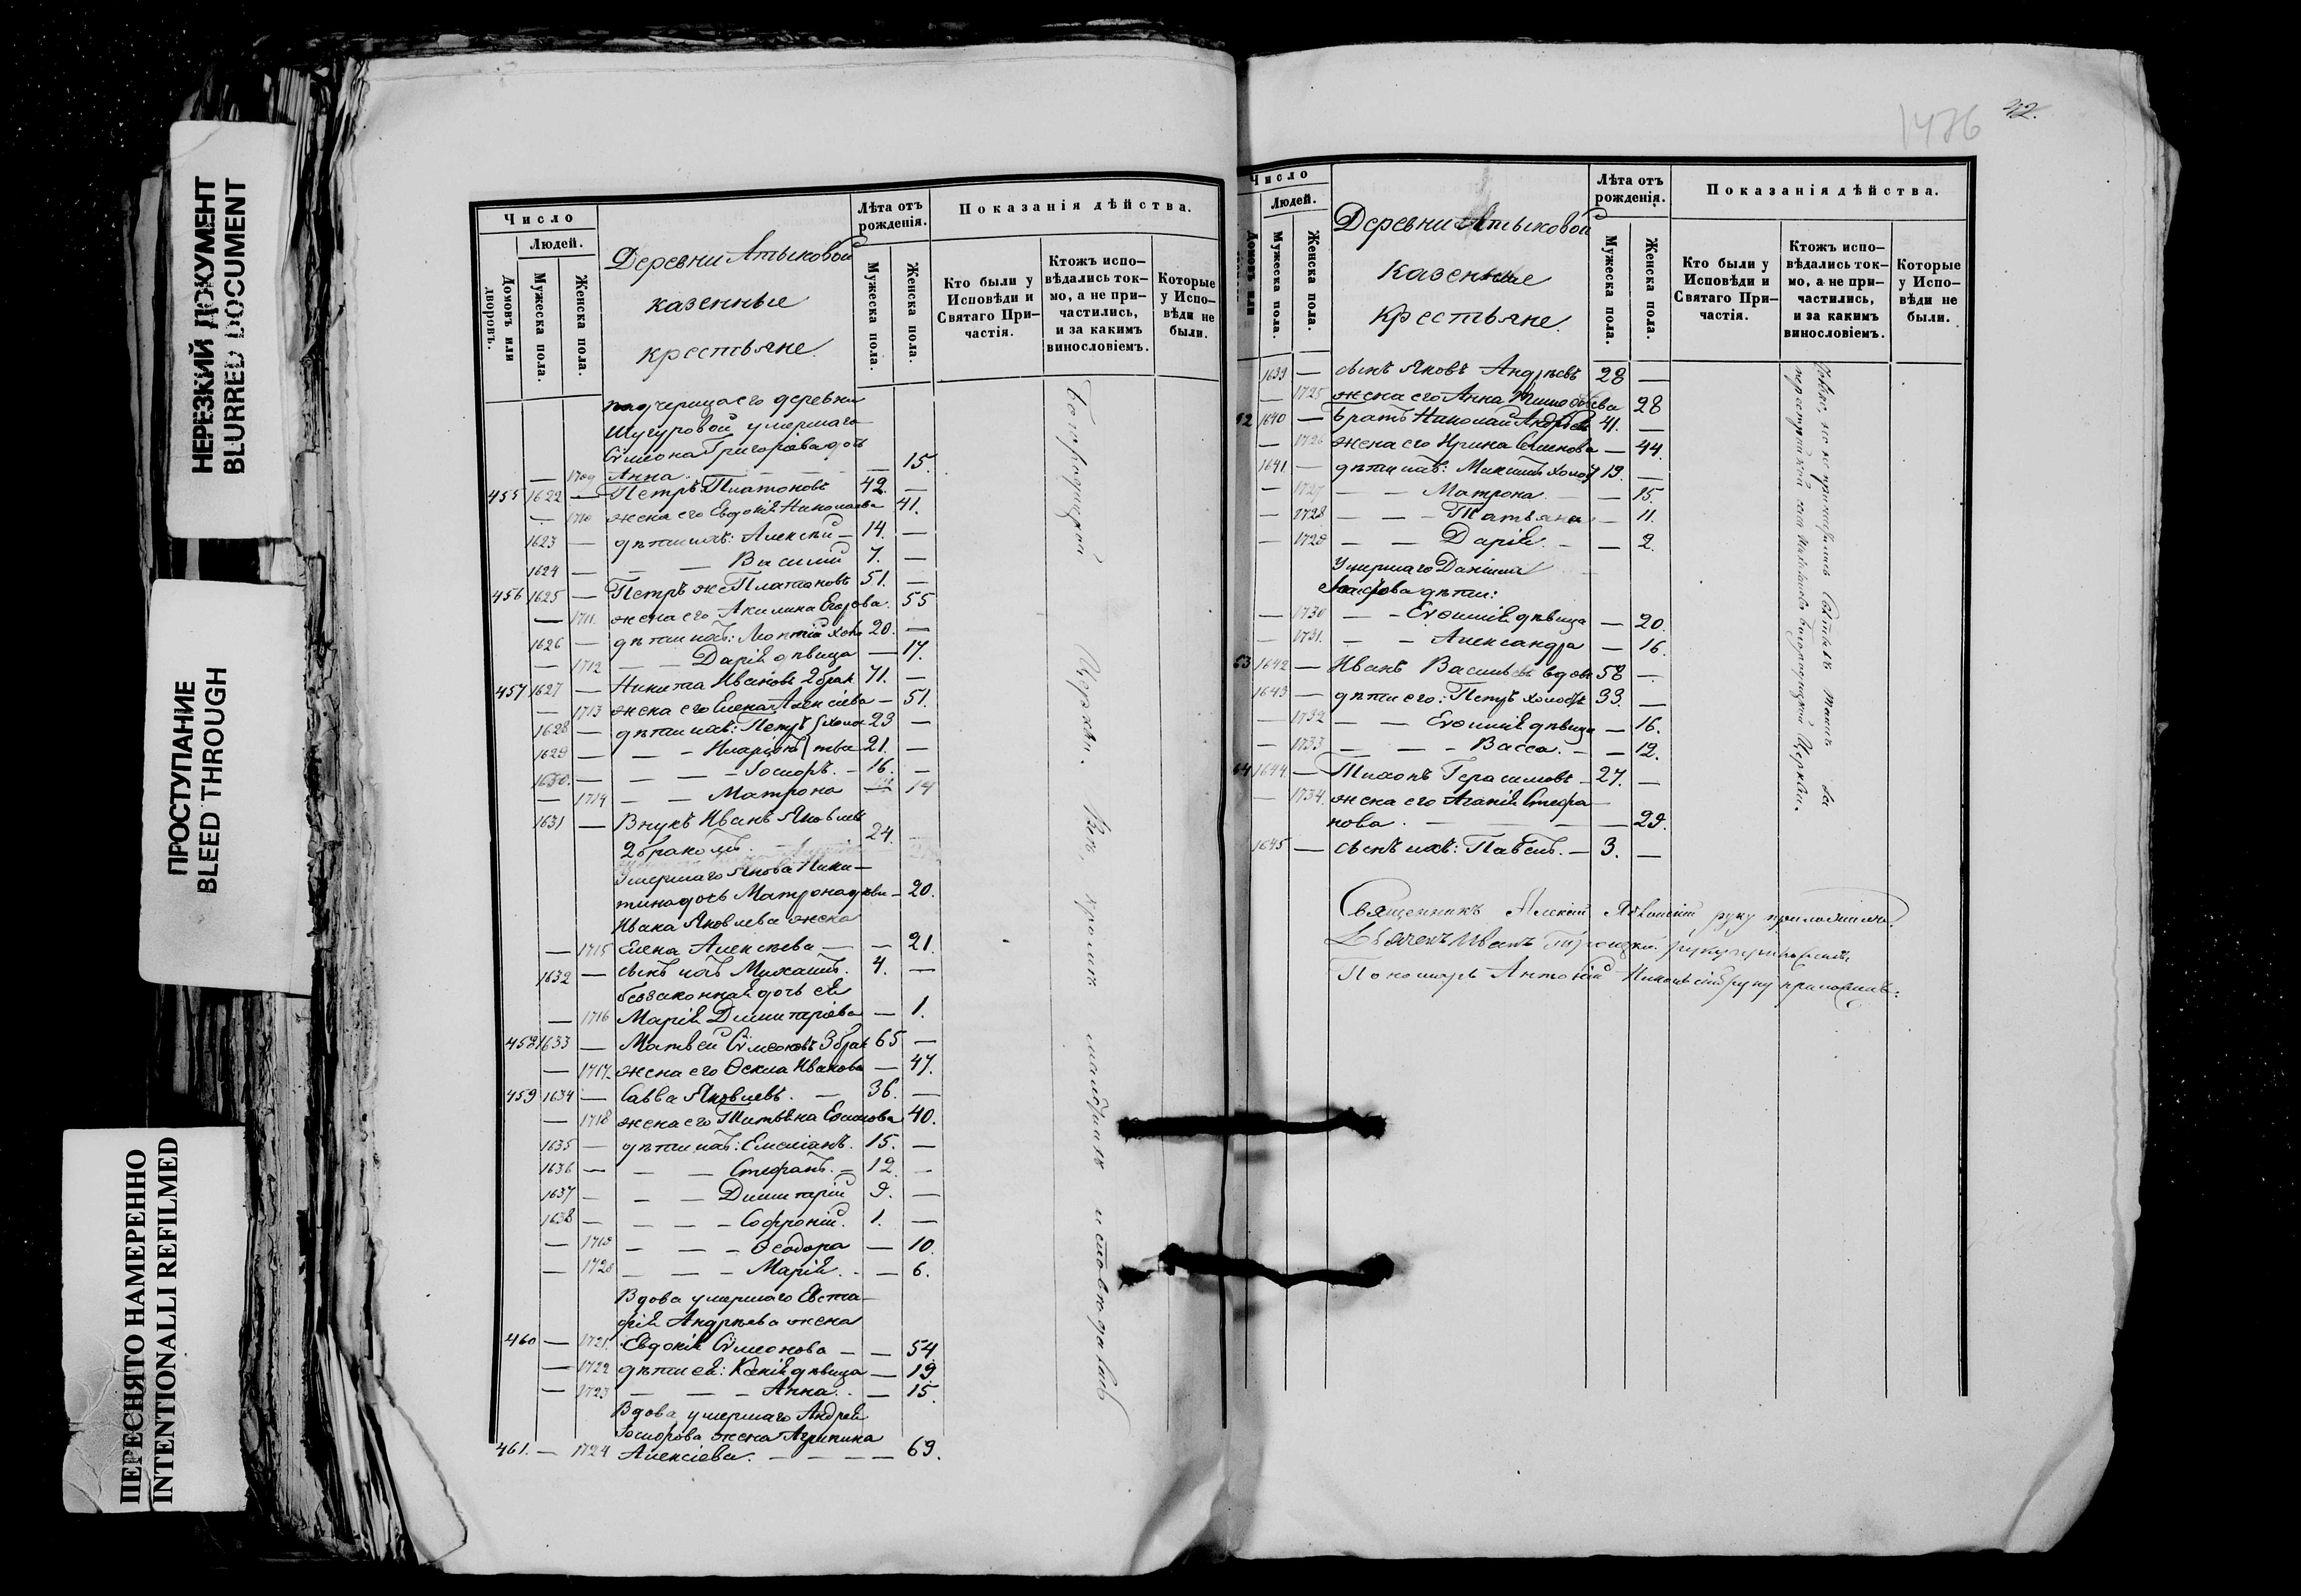 НЕРЕЗКИЙ ДОКУМЕНТ
BLURRED DOCUMENT
ПРОСТУПАНИЕ
BLEED THROUGH
ПЕРЕСНЯТО НАМЕРЕННО
INTENTIONALLI REFILMED
Число
Людей.
Домовъ или дворовъ.
Мужеска пола.
Женска пола.
Деревни Атыковой
казенные
крестьяне.
Лѣта отъ рожденія.
Мужеска пола.
Женска пола.
Показанія дѣйства.
Кто были у Исповѣди и Святаго Причастія.
Ктожъ исповѣдались токмо, а не причастились, и за какимъ винословіемъ.
Которые у Исповѣди не были.
падчерица его деревни
Шугуровой умершаго
Сѵмеона Григоріева дочь
— 1709 Анна. — 15.
455 1622 — Петръ Платоновъ 42. —
— 1710 жена его Евдокія Николаева 41.
1623 — дѣти ихъ: Алексѣй — 14. —
1624 — — — Василій 7. —
456 1625 — Петръ же Платоновъ 51. —
— 1711. жена его Акилина Егорова. 55
1626 — дѣти ихъ: 20. —
— 1712 — — Дарія дѣвица — 17.
457 1627 — Никита Ивановъ 2 брак 71. —
— 1713 жена его Елена Алексіева — 51.
1628 — дѣти ихъ: Петръ холос 23 —
1629 — — — Иларіонъ тые 21. —
1630. — — — — Ісидоръ. — 16. —
— 1714 — — Матрона — 14
1631 — Внукъ Иванъ Яковлевъ
2 бракомъ. 24.
Умершаго Якова Ники-
тина дочь Матрона — 20.
Ивана Яковлева жена
— 1715 Елена Алексѣева — — 21.
1632 — сынъ ихъ Михаилъ. 4. —
беззаконная дочь ея
— 1716 Марія Димитріева — 1.
458 1633 — Матвей Сѵмеоновъ 3 брак 65 —
— 1717. жена его Ѳекла Иванова — 47.
459 1634 — Савва Яковлевъ. — 36. —
— 1718 жена его Татьяна Ефимова 40.
1635 — дѣти ихъ: Емеліанъ. 15. —
1636 — — — Стефанъ. — 12. —
1637 — — — Димитрій 9. —
1638 — — — — Софроній. 1. —
— 1719 — — — Ѳеодора — 10.
— 1720 — — — Марія. — — 6.
Вдова умершаго Евста-
фія Андрѣева жена
460 — 1721. Евдокія Сѵмеонова — — 54
— 1722 дѣти ея: Ксенія дѣвица — 19.
— 1723 — — — Анна. — 15.
Вдова умершаго Андрея
Ісидорова жена Агрипина
461. — 1724 Алексіева. — — — — 69.
Богородицкой Церкви. Всѣ, кромѣ малолѣтнихъ исповѣдались
1486
42.
Число
Людей.
Домовъ или
Мужеска пола.
Женска пола.
Деревни Атыковой
казенные
крестьяне.
Лѣта отъ рожденія.
Мужеска пола.
Женска пола.
Показанія дѣйства.
Кто были у Исповѣди и Святаго Причастія.
Ктожъ исповѣдались токмо, а не причастились, и за какимъ винословіемъ.
Которые у Исповѣди не были.
1639 — сынъ Яковъ Андрѣевъ 28 —
— 1725 жена его Анна 28
62 1640 — братъ Николай Андрѣевъ 41. —
— 1726 жена его Ирина Семенова — 44.
1641. — дѣти ихъ: холос 19. —
— 1727 — — Матрона. — — 15.
— 1728 — — — Татьяна — 11.
— 1729 — — Дарія. — — 2.
Умершаго Даніила
дѣти:
— 1730 — — Евѳимія дѣвица — 20.
— 1731. — — Александра — 16.
63 1642 — Иванъ Васильевъ вдовъ 58 —
1643 — дѣти его: Петръ холостъ 33. —
— 1732 — — Евѳимія дѣвица — 16.
— 1733 — — — Васса. — — 12.
64 1644 — Тихонъ Герасимовъ — 27. —
— 1734. жена его Агаѳія Стефа-
нова. — — 29.
1645 — сынъ ихъ: Павелъ. — 3. —
но не причастились Святыхъ Таинъ за
Богородицкой Церкви.
Священникъ Алексій руку приложилъ.
Дьячекъ Иванъ Троицкій руку приложилъ.
Пономарь Антоній руку приложилъ.